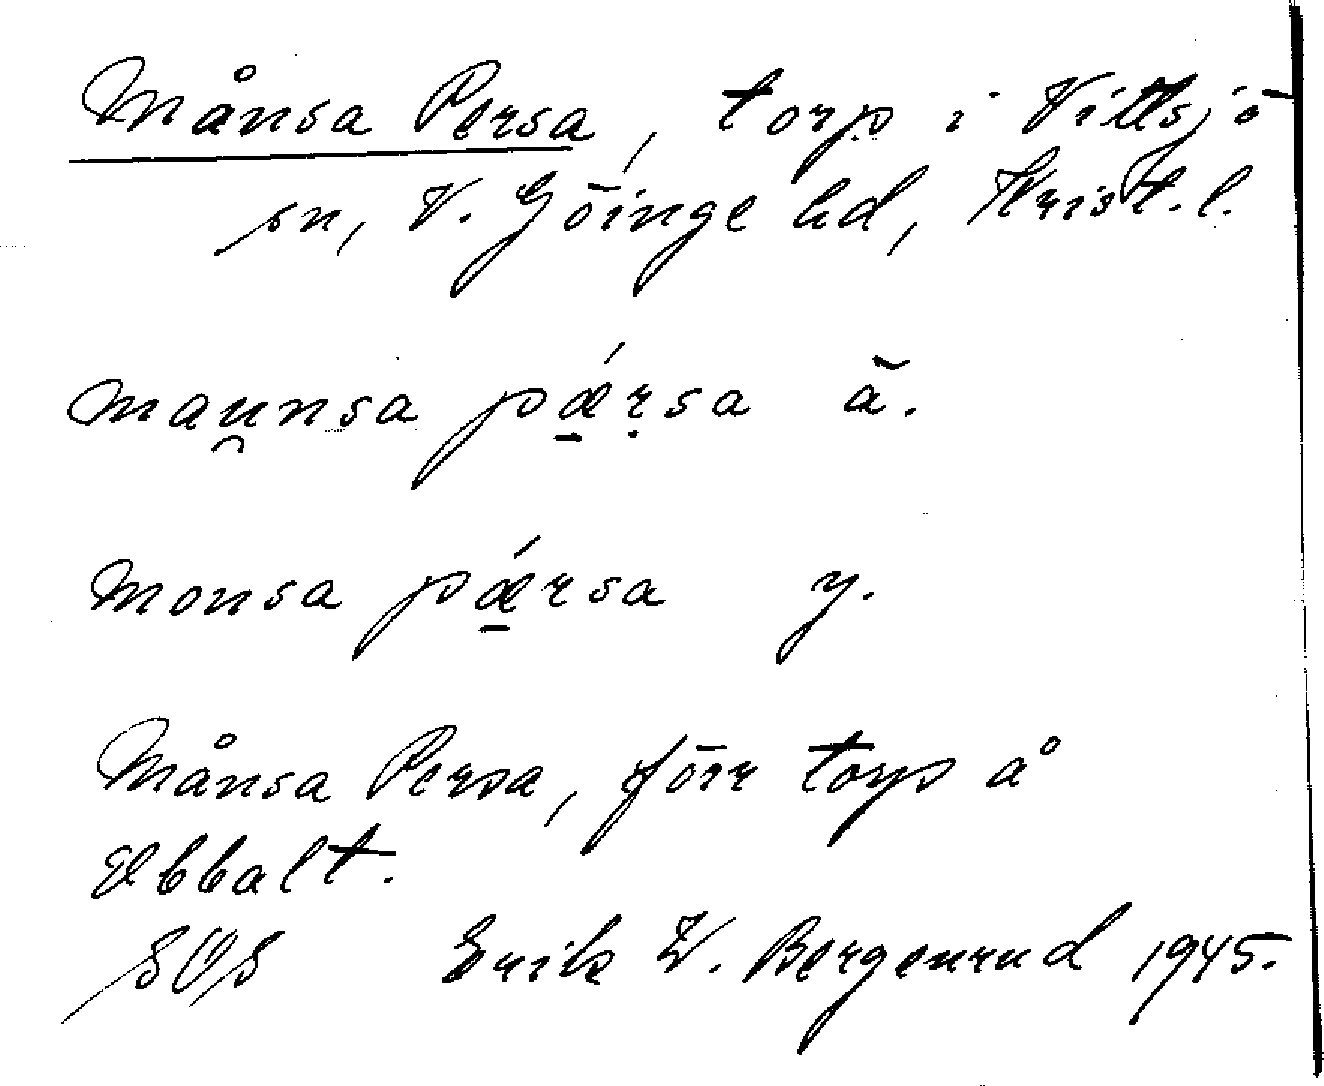 Månsa Persa, torp i Vittsjö
sn, V. Göinge hd, Krist. l.
mau̯nsa pǽ̱ṛsa ä.
monsa pǽ̱rsa y.
Månsa Persa, förr torp å
Ubbalt.
SOS Erik W. Bergenrud 1945.